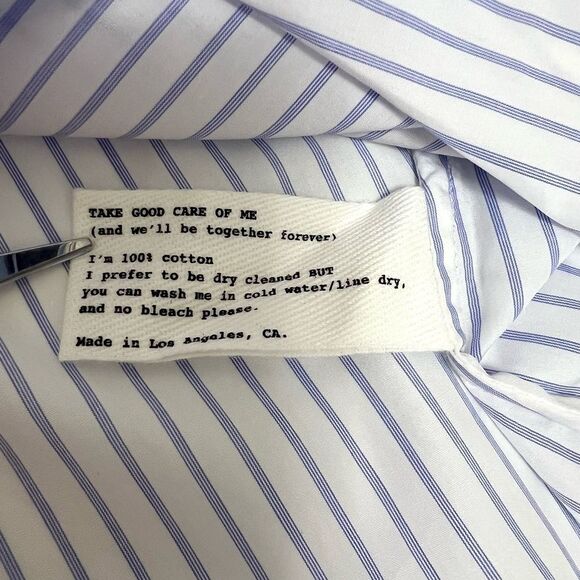 TAKE GOOD CARE OF ME
(and we'll be together forever)
I'm 100% cotton
I prefer to be dry cleaned BUT
you can wash me in cold water/line dry,
and no bleach please.
Made in Los Angeles, CA.